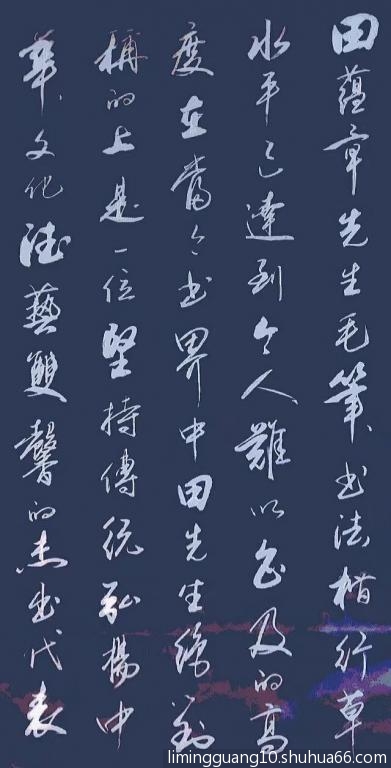 田蕴章先生毛筆书法楷行草
水平已達到令人難以企及的高
度在當今书界中田先生絕對
稱的上是一位堅持傳統弘揚中
華文化德藝雙馨的杰出代表
limingguang10.shuhua66.com